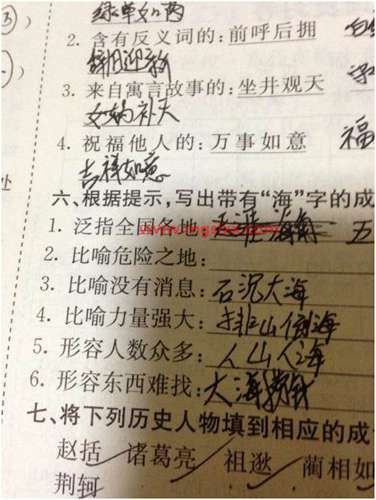 2. 含有反义词的：前呼后拥
辞旧迎新
3. 来自寓言故事的：坐井观天
女娲补天
4. 祝福他人的：万事如意 福
吉祥如意
处
六、根据提示，写出带有“海”字的成
1. 泛指全国各地：天涯海角 五
2. 比喻危险之地：
3. 比喻没有消息：石沉大海
4. 比喻力量强大：排山倒海
5. 形容人数众多：人山人海
6. 形容东西难找：大海捞针
七、将下列历史人物填到相应的成
赵括 诸葛亮 祖逖 蔺相如
荆轲